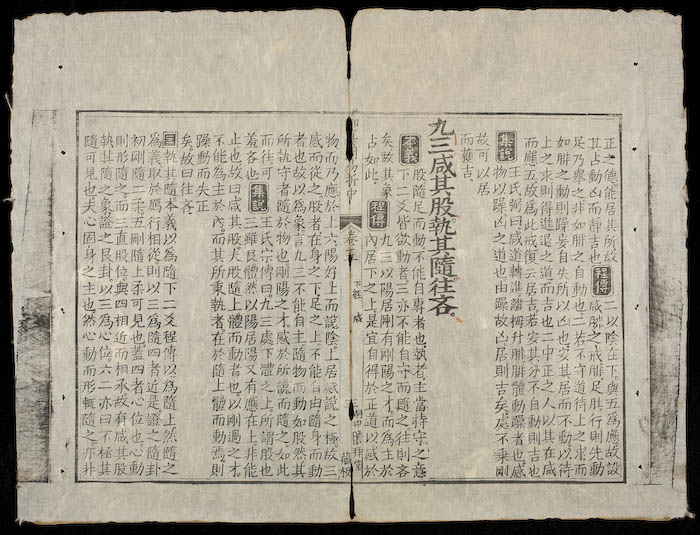 正之德能居其所故 程傳 二以陰在下與五為應故設
其占動凶而靜吉也 咸腓之戒腓足肚行則先動
足乃舉之非如腓之自動也二若不守道待上之求而
如腓之動則躁妄自失所以凶也安其居而不動以待
上之求則得進退之道而吉也二中正之人以其在咸
而應五故為此戒復云居吉若安其分不自動則吉也
集說 王氏弼曰咸道轉進離拇升腓腓體動躁者也感
物以躁凶之道也由躁故凶居則吉矣處不乘剛
故可以居
而獲吉
九三咸其股執其隨往吝
本義 股隨足而動不能自專者也執者主當持守之意
下二爻皆欲動者三亦不能自守而隨之往則吝
矣故其象 程傳 九三以陽居剛有剛陽之才而為主於
占如此 內居下之上是宜自得於正道以感於
折中
下經 咸
物而乃應於上六陽好上而說陰上居感說之極故三
感而從之股者在身之下足之上不能自由隨身而動
者也故以為象言九三不能自主隨物而動如股然其
所執守者隨於物也剛陽之才感於所說而隨之如此
而往可 集說 王氏宗傳曰九三處下體之上所謂股也
羞吝也 三雖艮體然以陽居陽又有應在上非能
止也故曰咸其股夫股隨上體而動者也以剛過之才
不能為主於內而其所秉執者在於隨上體而動焉則
躁動而失正
矣故曰往吝
案 執其隨本義以為隨下二爻程傳以為隨上然隨之
為義取於爲行相從則以三為隨四者近是證之隨卦
初剛隨二柔五剛隨上柔可見也蓋四者心位也心動
則形隨之而三直股位與四相近而相承故有咸其股
執其隨之象證之艮卦以三為心位六二亦曰不拯其
隨可見也夫心固身之主也然心動而形輒隨之亦非